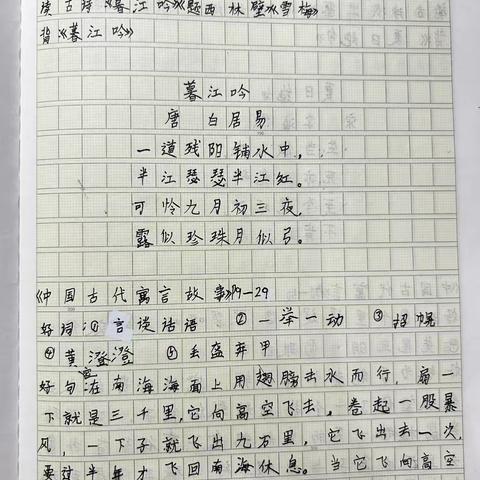 读古诗《暮江吟》《题西林壁》《雪梅》
背《暮江吟》
暮江吟
唐 白居易
一道残阳铺水中，
半江瑟瑟半江红。
可怜九月初三夜，
露似珍珠月似弓。
《中国古代寓言故事》19-29
好词：①言谈话语 ②一举一动 ③招幌
④黄澄澄 ⑤丢盔弃甲
好句：在南海海面上用翅膀击水而行，扇一
下就是三千里，它向高空飞去，卷起一股暴
风，一下子就飞出九万里，它飞出去一次，
要过半年才飞回南海休息。当它飞向高空